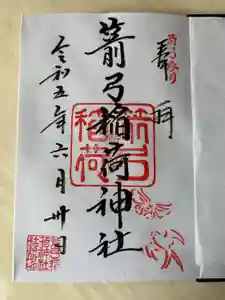 奉拝
箭弓稲荷神社
箭弓稲荷
令和五年六月卅日